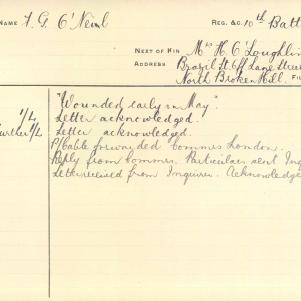 NAME F. G. O'Neil REG. &C. 10th Batt
NEXT OF KIN Mrs H. C. O'Loughlin
ADDRESS Brazil St. Off Lane Street
North Broken Hill. Fi
"Wounded early in May".
1/L Letter acknowledged.
further 1/L Letter acknowledged.
P/Cable forwarded Commrs London.
Reply from Commrs. Particulars sent Inq
Letter received from Inquirer. Acknowledge